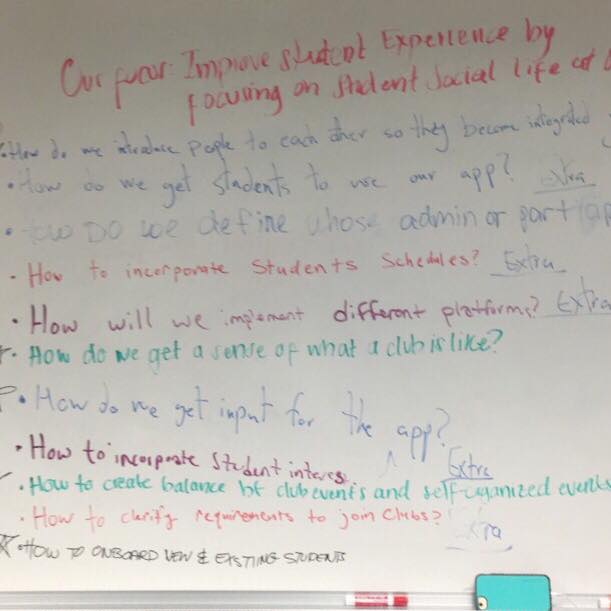 Our focus: Improve student Experience by
focusing on student social life at
• How do we introduce people to each other so they become integrated
• How do we get students to use our app? extra
• How DO we define whose admin or part
• How to incorporate students schedules? Extra
• How will we implement different platforms? Extra
• How do we get a sense of what a club is like?
• How do we get input for the app?
• How to incorporate student interest
Extra
• How to create balance bt club events and self-organized events
• How to clarify requirements to join clubs? Extra
• HOW TO ONBOARD NEW & EXISTING STUDENTS